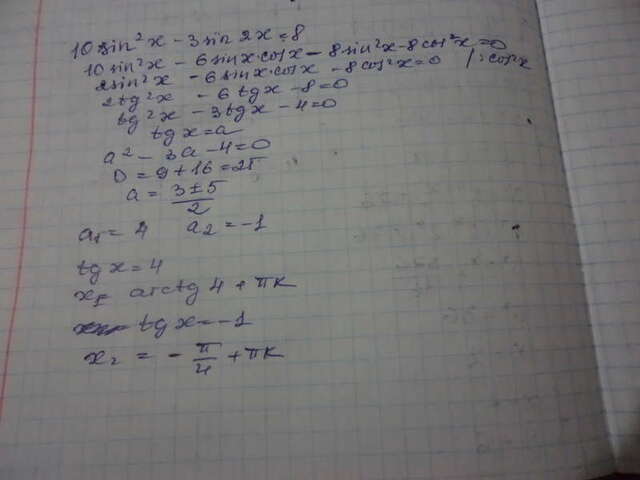 10 sin²x - 3 sin 2x = 8
10 sin²x - 6 sinx·cosx - 8 sin²x - 8 cos²x = 0
2 sin²x - 6 sinx·cosx - 8 cos²x = 0 / : cos²x
2tg²x - 6 tgx - 8 = 0
tg²x - 3tgx - 4 = 0
tgx = a
a² - 3a - 4 = 0
D = 9 + 16 = 25
a = (3 ± 5)/2
a₁ = 4 a₂ = -1
tgx = 4
x₁ = arctg 4 + πk
tgx = -1
x₂ = - π/4 + πk